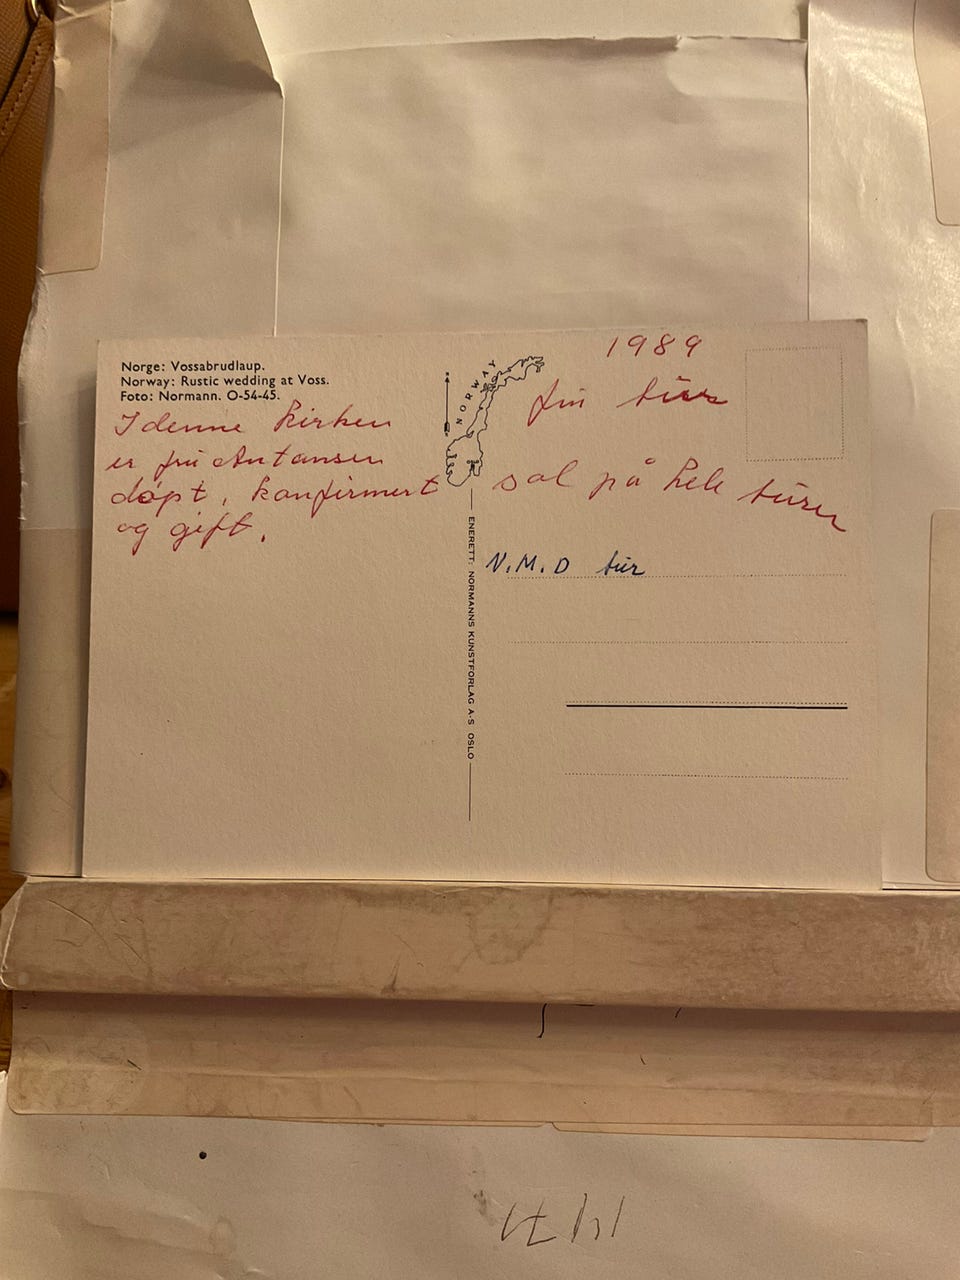 Norge: Vossabrudlaup.
Norway: Rustic wedding at Voss.
Foto: Normann. O-54-45.
I denne kirken
er fru Antansen
døpt, konfirmert
og gift.
NORWAY
ENERETT: NORMANNS KUNSTFORLAG A-S OSLO
1989
fin tur
sol på hele turen
N.M.D tur